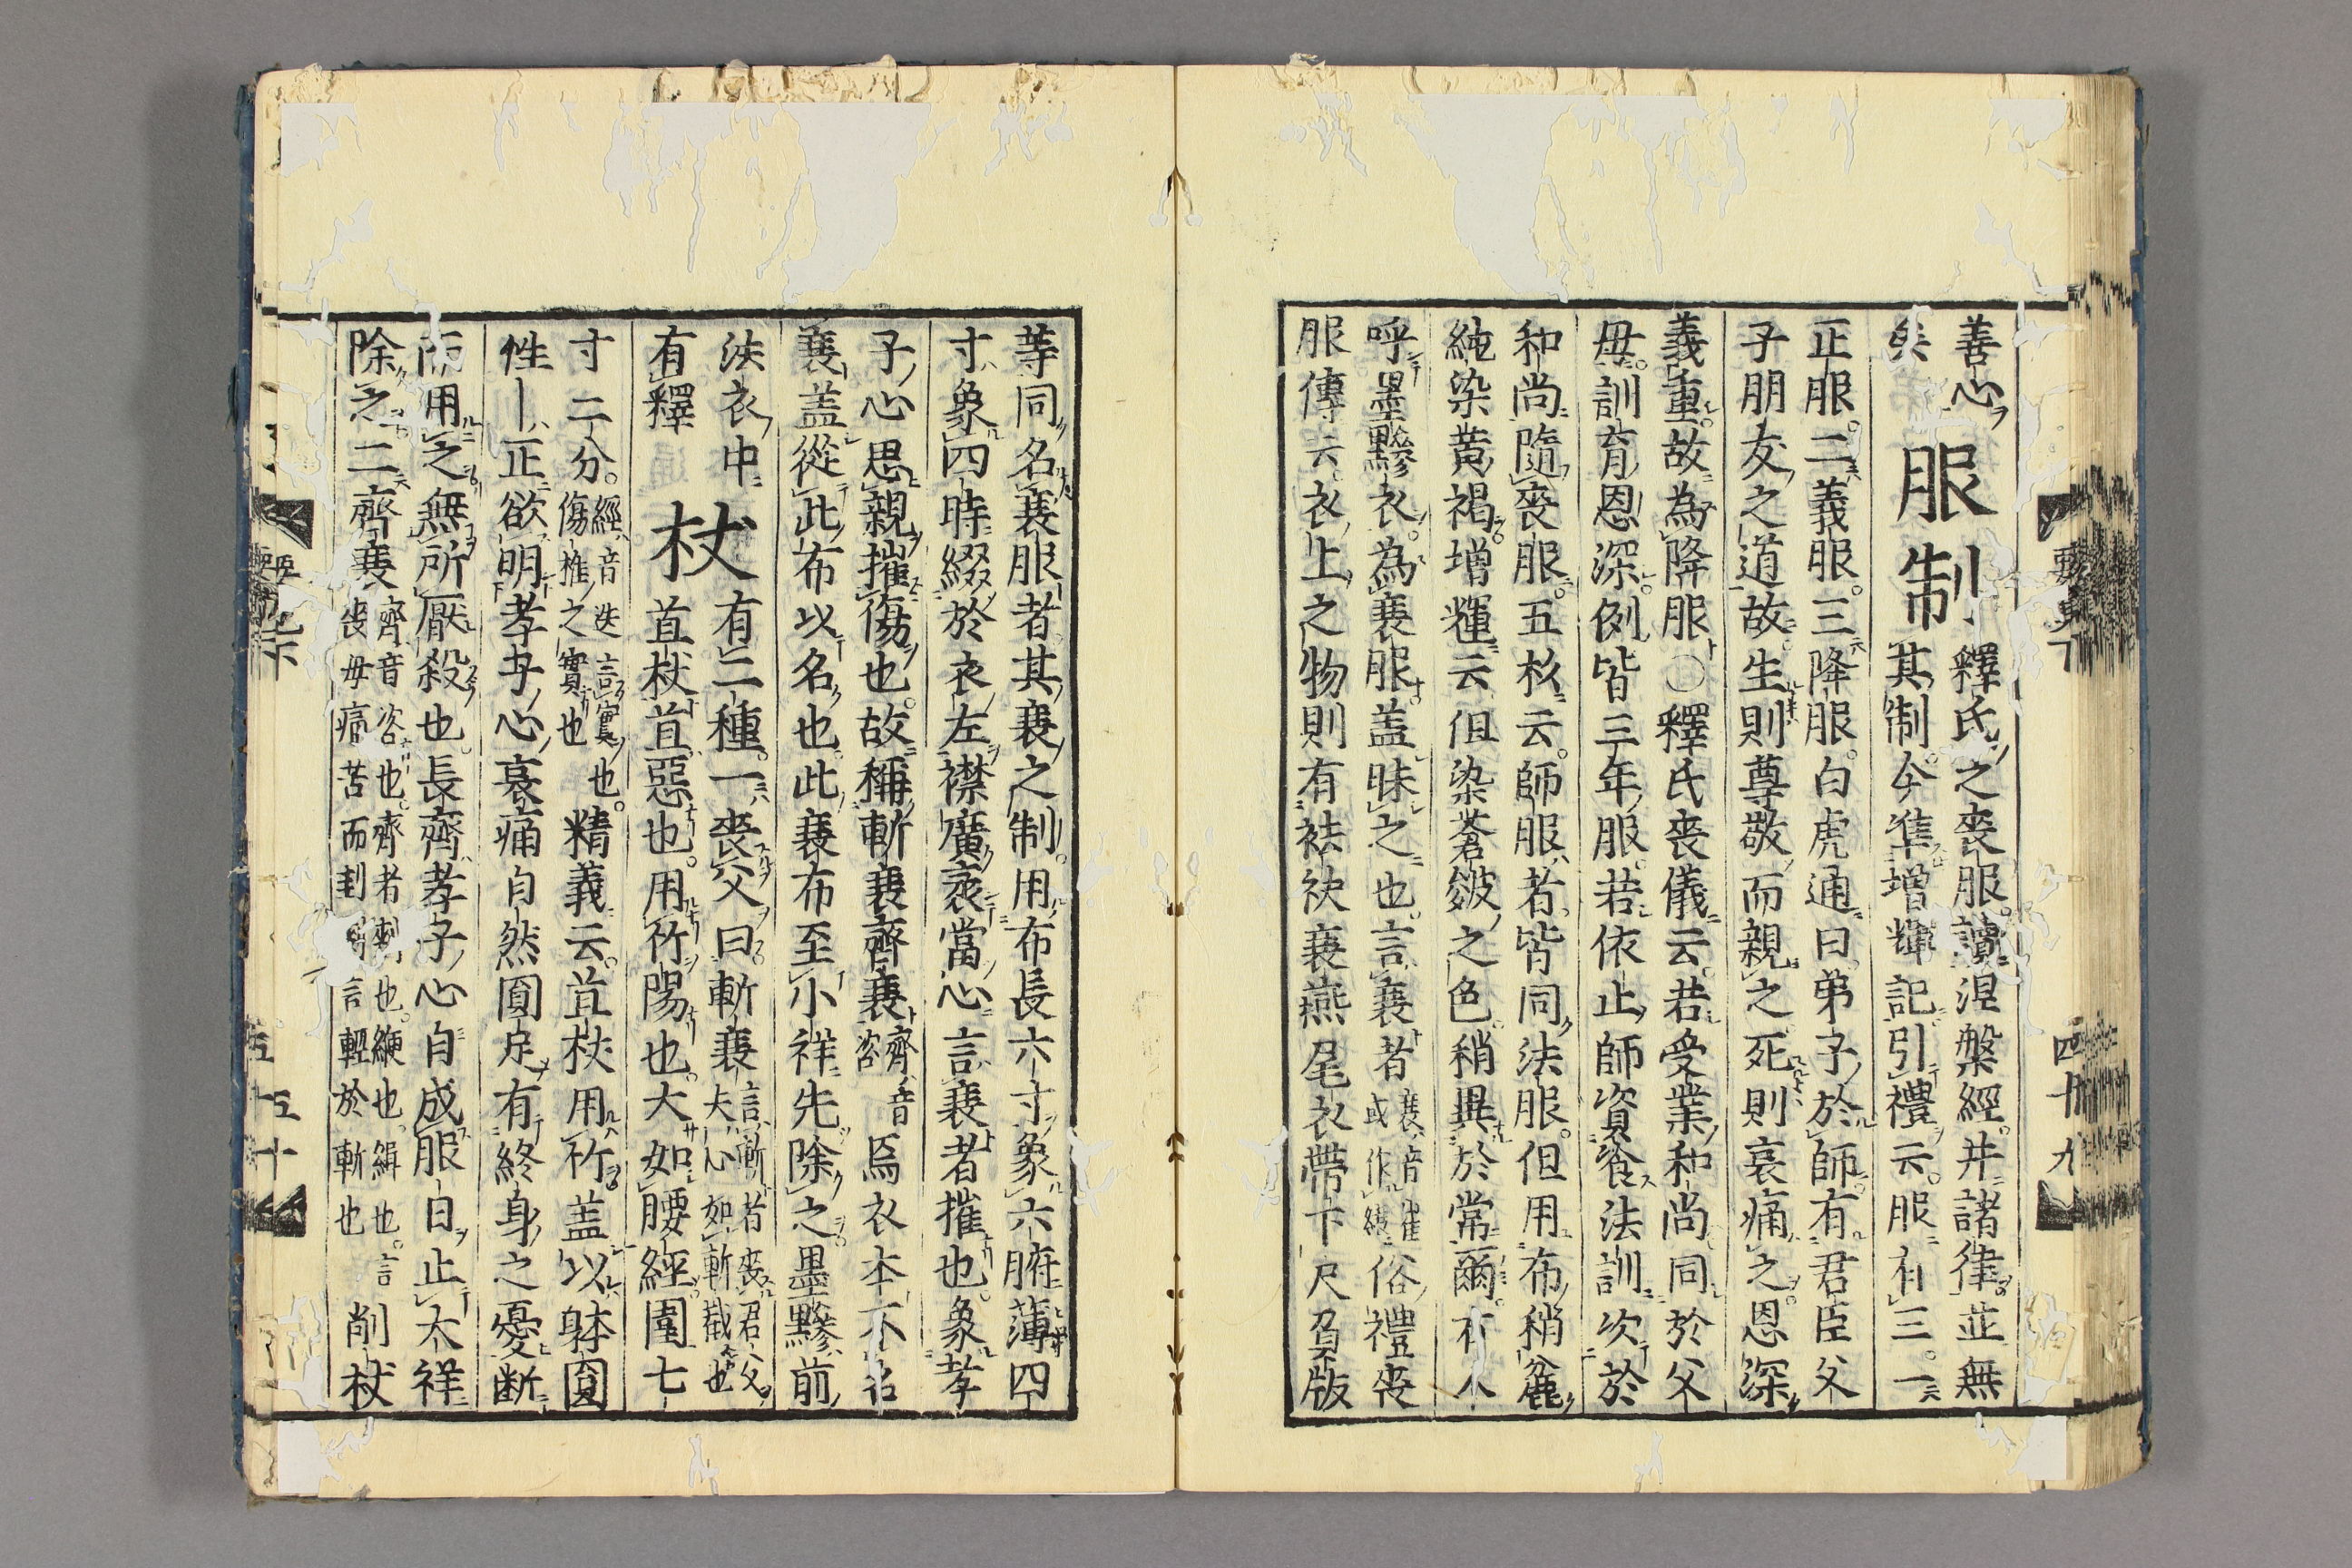 善心 服制 釋氏之喪服讀涅槃經并諸律並無
矣 其制今準增輝記引禮云服有三一
正服二義服三降服白虎通曰弟子於師有君臣父
子朋友之道故生則尊敬而親之死則哀痛之恩深
義重故為降服○釋氏喪儀云若受業和尚同於父
母訓育恩深例皆三年服若依止師資飡法訓次於
和尚隨喪服五杉云師服者皆同法服但用布稍麁
純染黃褐增輝云但染蒼皴之色稍異於常爾有人
呼墨黲衣為蓑服盖昧之也言蓑者 蓑音催 或作縗 俗禮喪
服傳云衣上之物則有袪袂蓑燕尾衣帶下尺負版
要覽下 四十九
等同名蓑服者其蓑之制用布長六寸象六腑薄四
寸象四時綴於衣左襟廣袤當心言蓑者摧也象孝
子心思親摧傷也故稱斬蓑齊蓑 齊音 咨 爲衣本不名
蓑盖從此布以名也此蓑布至小祥先除之墨黲前
法衣中 杖 有二種一喪父曰斬蓑 言斬者喪君父 夫心如斬截也
有釋 苴杖苴惡也用竹陽也大如腰絰圍七
寸二分 絰音迭言實也 傷摧之實也 精義云苴杖用竹盖以躰圓
性正欲明孝子心哀痛自然圓足有終身之憂断
而用之無所厭殺也長齊孝子心自成服日止大祥
除之二齊蓑 齊音咨也齊者剌也緶也緝也言 喪母痛苦而刲言輕於斬也 削杖
五十